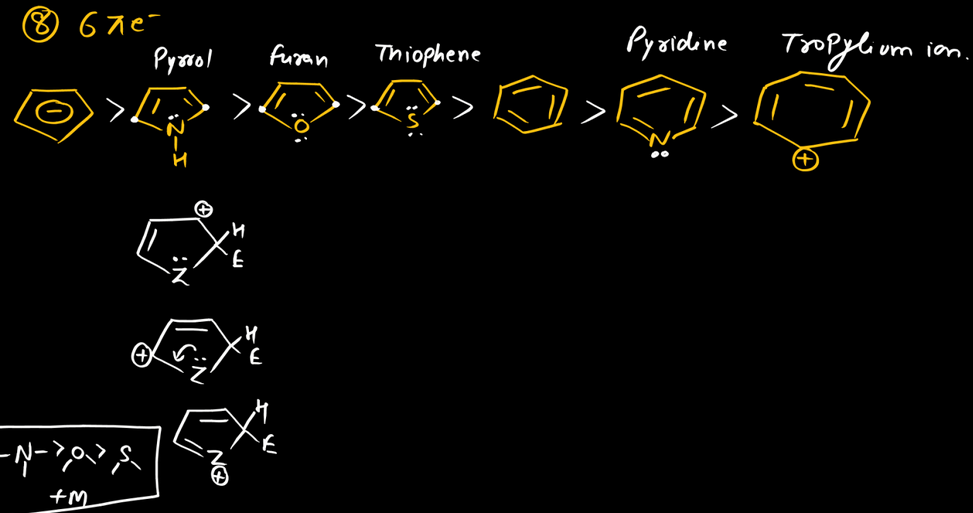 ⑧ 6πe⁻
Pyrrol Furan Thiophene Pyridine Tropylium ion.
⊖ > N H > O > S > > N > ⊕
⊕ H E Z
⊕ H E Z
H E Z ⊕
-N- > O > S
+M